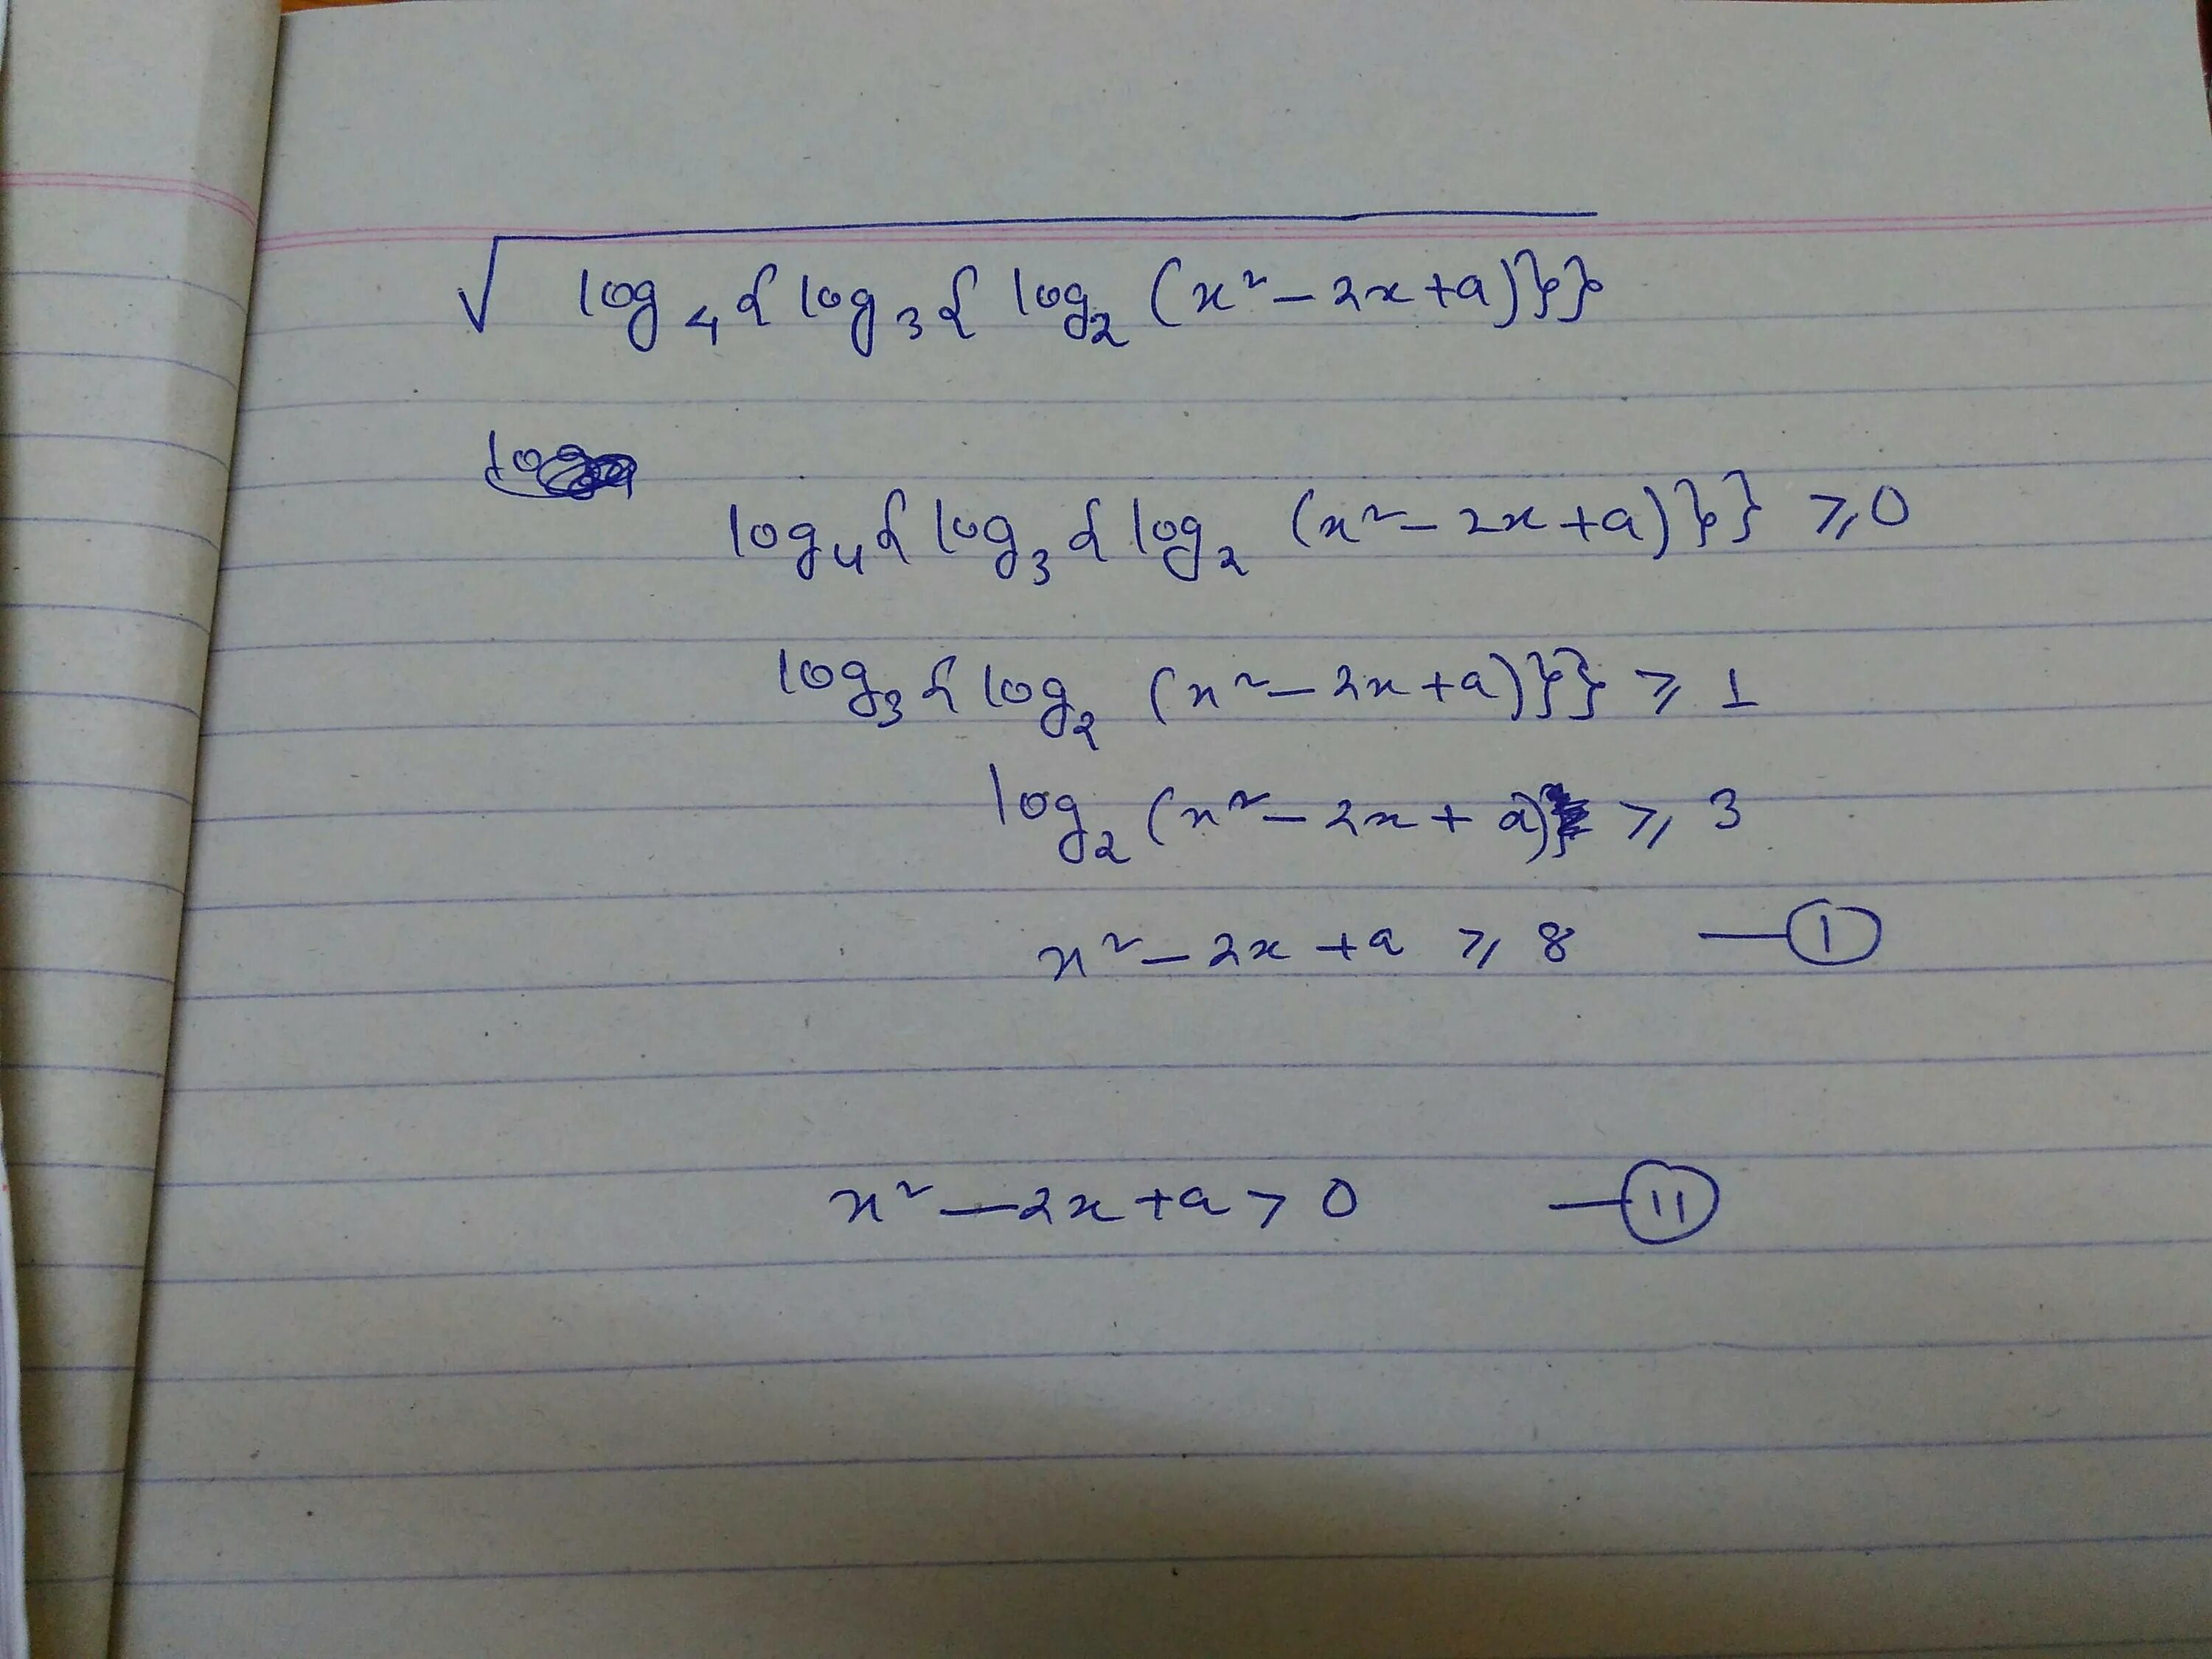 √ log₄{log₃{log₂(x²-2x+a)}}
log₄{log₃{log₂(x²-2x+a)}} ≥ 0
log₃{log₂(x²-2x+a)}} ≥ 1
log₂(x²-2x+a)} ≥ 3
x²-2x+a ≥ 8 —①
x²-2x+a > 0 —⑪